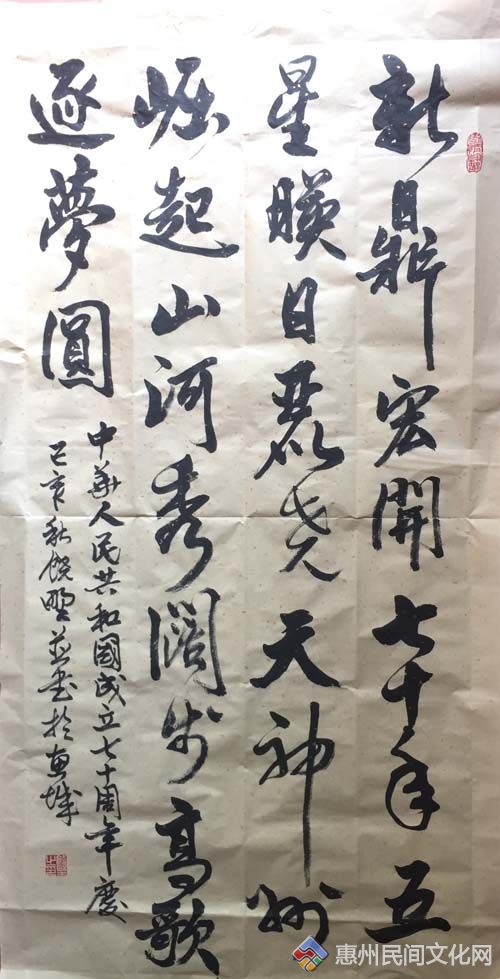 新鼎宏開七十年五
星暎日麗堯天神州
崛起山河秀闊步高歌
逐夢圓
中華人民共和國成立七十周年慶
己亥秋饶野並书於惠城
惠州民间文化网